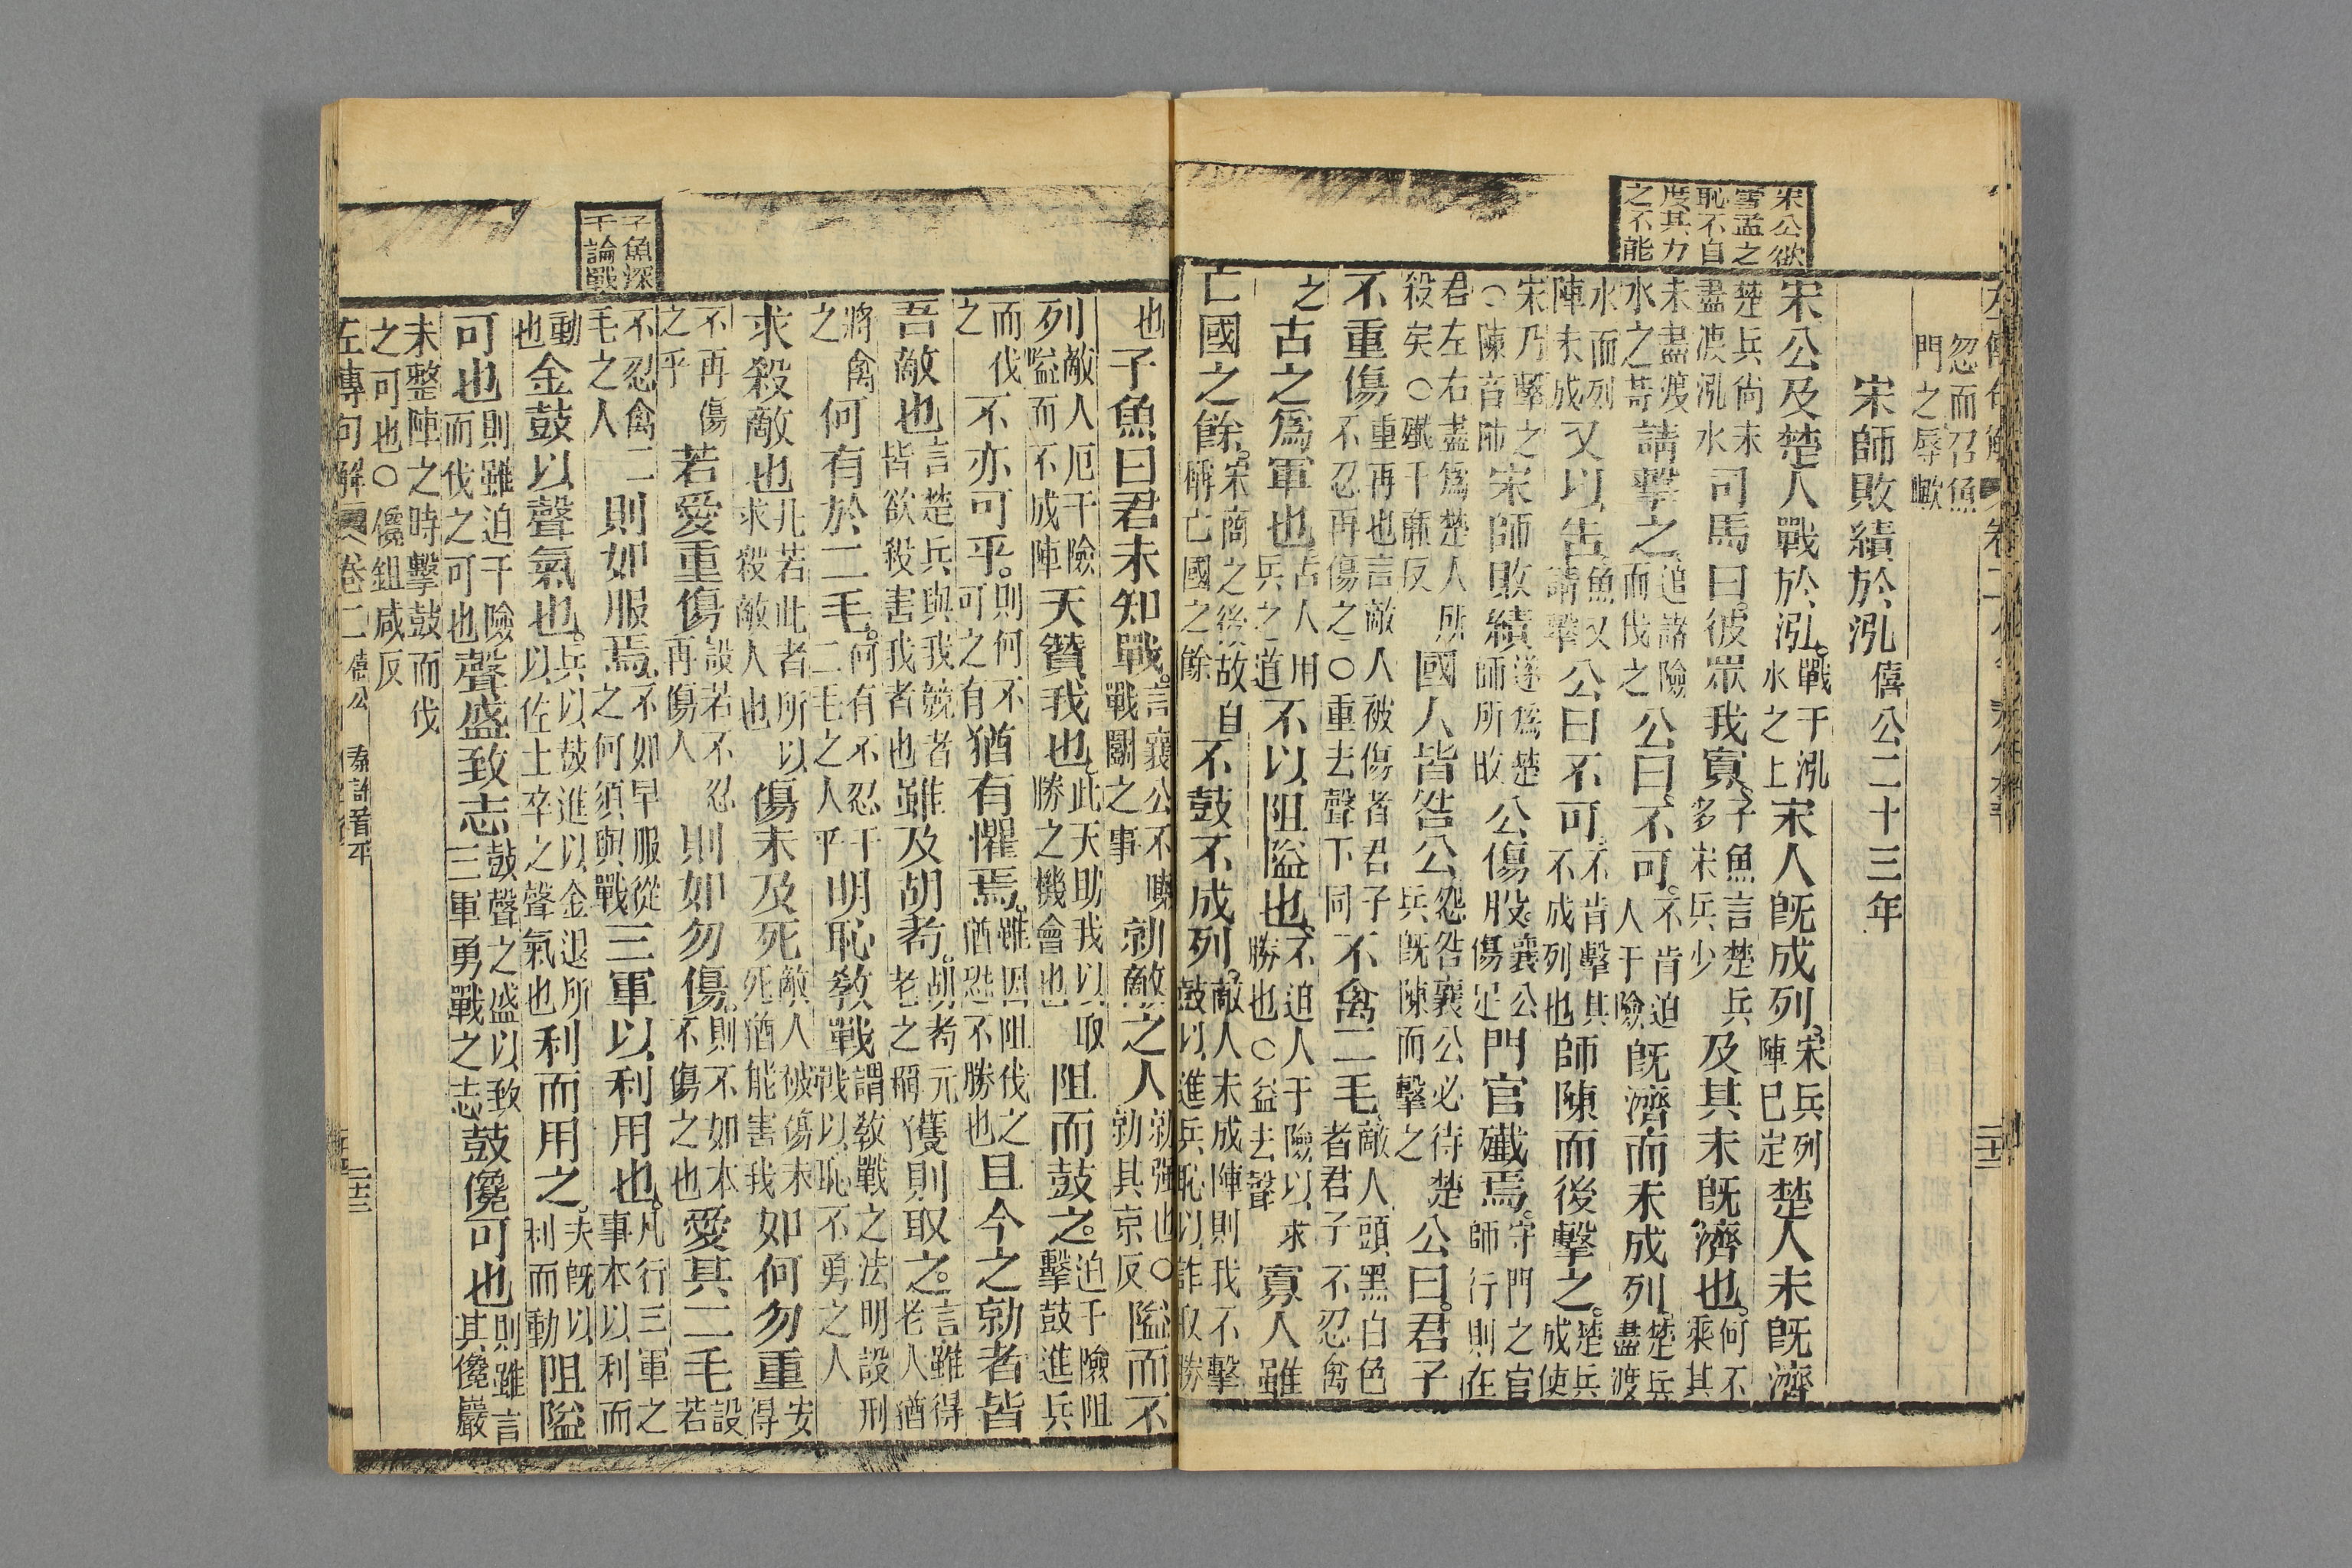 宋公欲
雪孟之
恥不自
度其力
之不能
忽而召魚門之辱歟
宋師敗績於泓僖公二十三年
宋公及楚人戰於泓戰于泓水之上宋人旣成列宋兵列陣已定楚人未旣濟
楚兵尚未盡渡泓水司馬曰彼眾我寡子魚言楚兵多宋兵少及其未旣濟也何不乘其
未盡渡水之時請擊之追諸險而伐之公曰不可不肯迫人于險旣濟而未成列楚兵盡渡
水而列陣未成又以告魚又請擊公曰不可不肯擊其不成列也師陳而後擊之楚兵成使
宋乃擊之○陳音陣宋師敗績遂爲楚師所敗公傷股襄公傷足門官殲焉守門之官師行則在
君左右盡爲楚人所殺矣○殲千亷反國人皆咎公怨咎襄公必待楚兵旣陳而擊之公曰君子
不重傷重再也言敵人被傷者君子不忍再傷之○重去聲下同不禽二毛敵人頭黑白色者君子不忍禽
之古之爲軍也古人用兵之道不以阻隘也不迫人于險以求勝也○益去聲寡人雖
亡國之餘宋商之後故自稱亡國之餘不鼓不成列敵人未成陣則我不擊鼓以進兵恥以詐取勝
子魚深
千論戰
也子魚曰君未知戰言襄公不曉戰鬬之事勍敵之人勍强也○勍其京反隘而不
列敵人厄于險隘而不成陣天贊我也此天助我以取勝之機會也阻而鼓之迫于險阻擊鼓進兵
而伐之不亦可乎則何不可之有猶有懼焉雖因阻伐之猶恐不勝也且今之勍者皆
吾敵也言楚兵與我競者皆欲殺害我者也雖及胡耇胡耇元老之稱獲則取之言雖得老人猶
將禽之何有於二毛何有不忍于二毛之人乎明恥敎戰謂敎戰之法明設刑戮以恥不勇之人
求殺敵也凡若此者所以求殺敵人也傷未及死敵人被傷未死猶能害我如何勿重安得
不再傷之乎若愛重傷設若不忍再傷人則如勿傷則不如本不傷之也愛其二毛設若
不忍禽二毛之人則如服焉不如早服從之何須與戰三軍以利用也凡行三軍之事本以利而
動也金鼓以聲氣也兵以鼓進以金退所以佐士卒之聲氣也利而用之夫旣以利而動阻隘
可也則雖迫于險而伐之可也聲盛致志鼓聲之盛以致三軍勇戰之志鼓儳可也則雖言其儳巖
未整陣之時擊鼓而伐之可也○儳鉏咸反
左傳句解 卷二 僖公 二十三